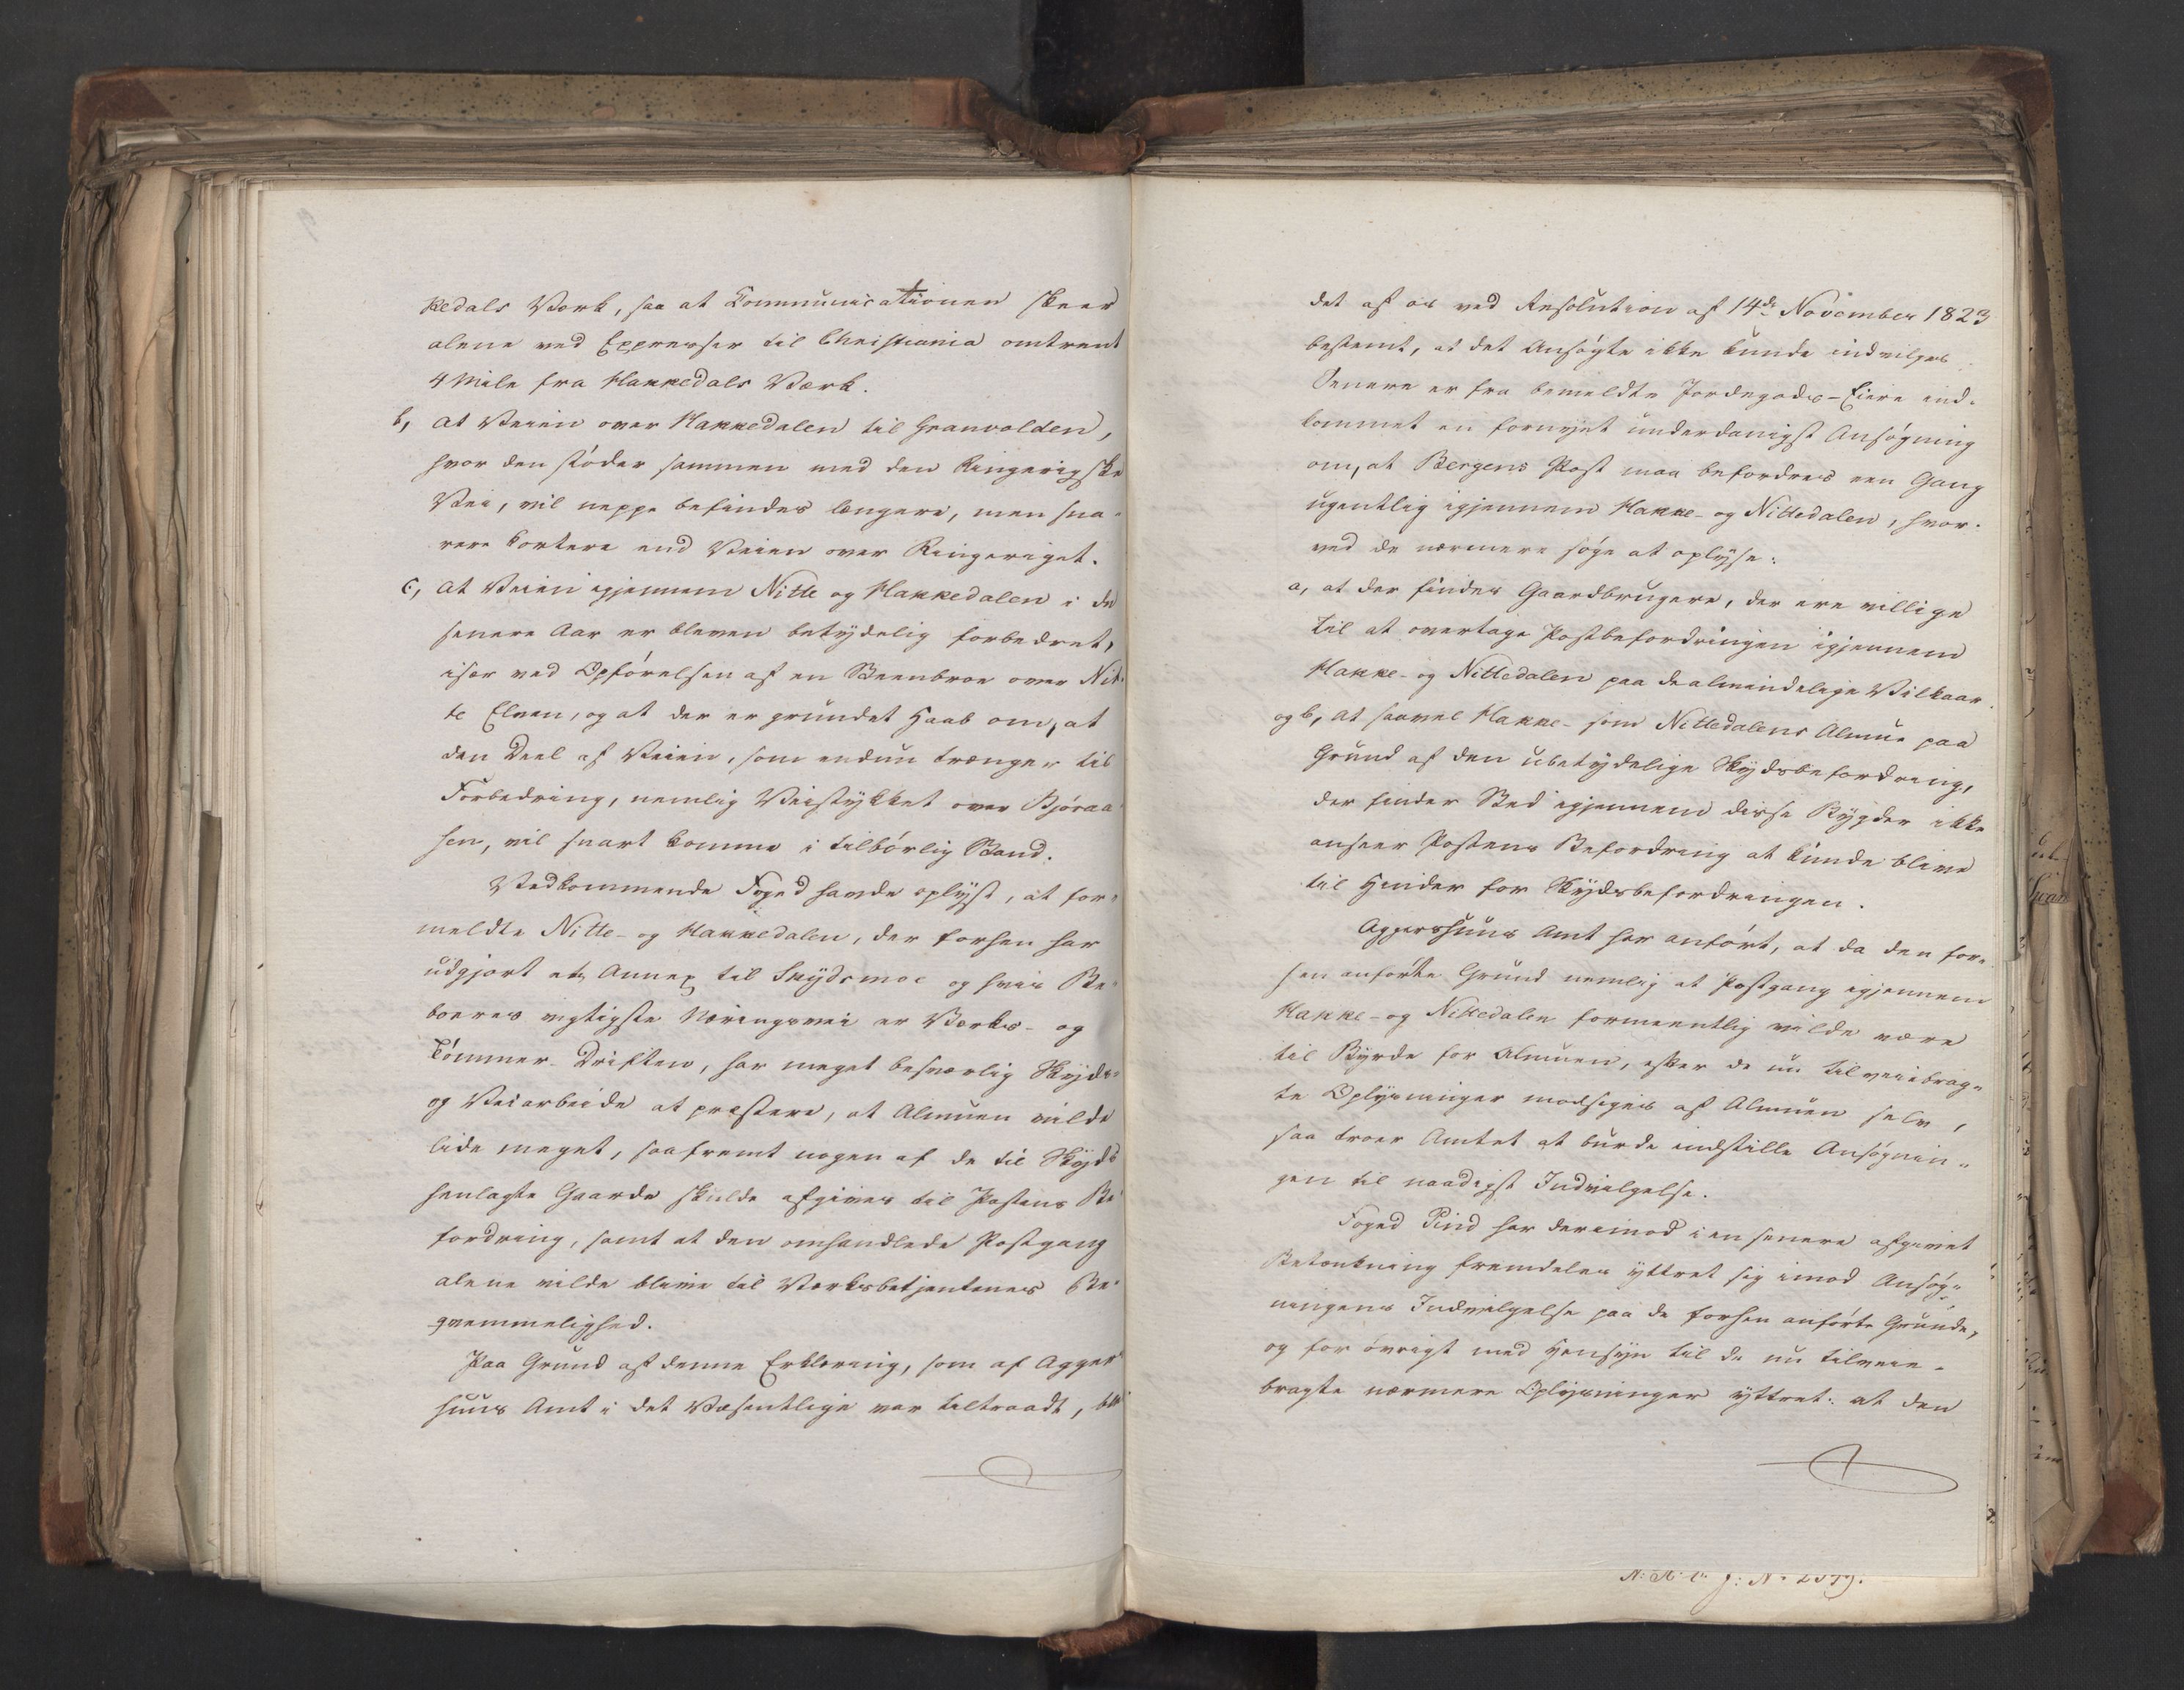 kedals Værk, saa at Communicationen skeer
alene ved Expresser til Christiania omtrent
4 Mile fra Hakkedals Værk.
b, at Veien over Hakkedalen til Granvolden,
hvor den støder sammen med den Ringerigske
Vei, vil neppe befindes længere, men sna-
rere kortere end Veien over Ringeriget.
c, at Veien igjennem Nitte og Hakkedalen i de
senere Aar er bleven betydelig forbedret,
især ved Opførelsen af en Steenbroe over Nit-
te Elven, og at der er grundet Haab om, at
den Deel af Veien, som endnu trænger til
Forbedring, nemlig Veistykket over Bjøraa-
sen, vil snart komme i tilbørlig Stand.
Vedkommende Foged havde oplyst, at for-
meldte Nitte- og Hakkedalen, der forhen har
udgjort et Annex til Skydsmoe og hvis Be-
boeres vigtigste Næringsvei er Værks- og
Tømmer-Driften, har meget besværlig Skyds-
og Veiarbeide at præstere, at Almuen vilde
lide meget, saafremt nogen af de til Skyds
henlagte Gaarde skulde afgives til Postens Be-
fordring, samt at den omhandlede Postgang
alene vilde blive til Værksbetjentenes Be-
qvemmelighed.
Paa Grund af denne Erklæring, som af Agger-
huus Amt i det Væsentlige var tiltraadt, blev
det af os ved Resolution af 14de November 1823
bestemt, at det Ansøgte ikke kunde indvilges.
Senere er fra bemeldte Jordegods-Eiere ind-
kommet en fornyet underdanigst Ansøgning
om, at Bergens Post maa befordres een Gang
ugentlig igjennem Hakke- og Nittedalen, hvor-
ved de nærmere søge at oplyse:
a, at der findes Gaardbrugere, der ere villige
til at overtage Postbefordringen igjennem
Hakke- og Nittedalen paa de almindelige Vilkaar.
og b, at saavel Hakke- som Nittedalens Almue paa
Grund af den ubetydelige Skydsbefordring,
der finder Sted igjennem disse Bygder ikke
anseer Postens Befordring at kunde blive
til Hinder for Skydsbefordringen.
Aggershuus Amt har anført, at da den for-
hen anførte Grund nemlig at Postgang igjennem
Hakke- og Nittedalen formeentlig vilde være
til Byrde for Almuen, efter de nu tilveiebrag-
te Oplysninger modsiges af Almuen selv,
saa troer Amtet at burde indstille Ansøgnin-
gen til naadigst Indvilgelse.
Foged Pind har derimod i en senere afgivet
Betænkning fremdeles yttret sig imod Ansøg-
ningens Indvilgelse paa de forhen anførte Grunde,
og for øvrigt med Hensyn til de nu tilveie-
bragte nærmere Oplysninger yttret: at den